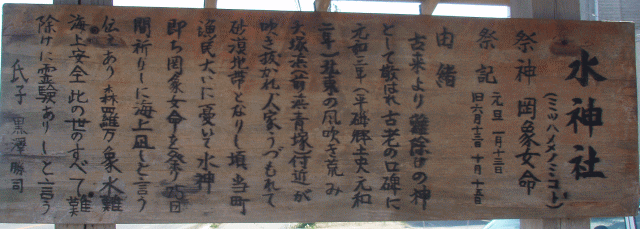 水神社
(ミツハノメノミコト)
祭神 岡象女命
祭記 元旦 一月十三日
旧六月十三日 十月十三日
由緒
古来より難除けの神
として敬はれ古老の口碑に
元和三年(平砂勝士史)元和
二年一北東の風吹き荒み
大塚浜(前浜青塚)付近が
吹き抜かれ人家うづもれて
砂漠地帯となりし頃当町
漁民大いに憂いて水神
即ち岡象女命を祭り
間祈りしに海上凪しと言う
伝へあり森羅万象水難
海上安全此の世のすべて難
除けに霊験ありしと言う
氏子 黒澤勝司